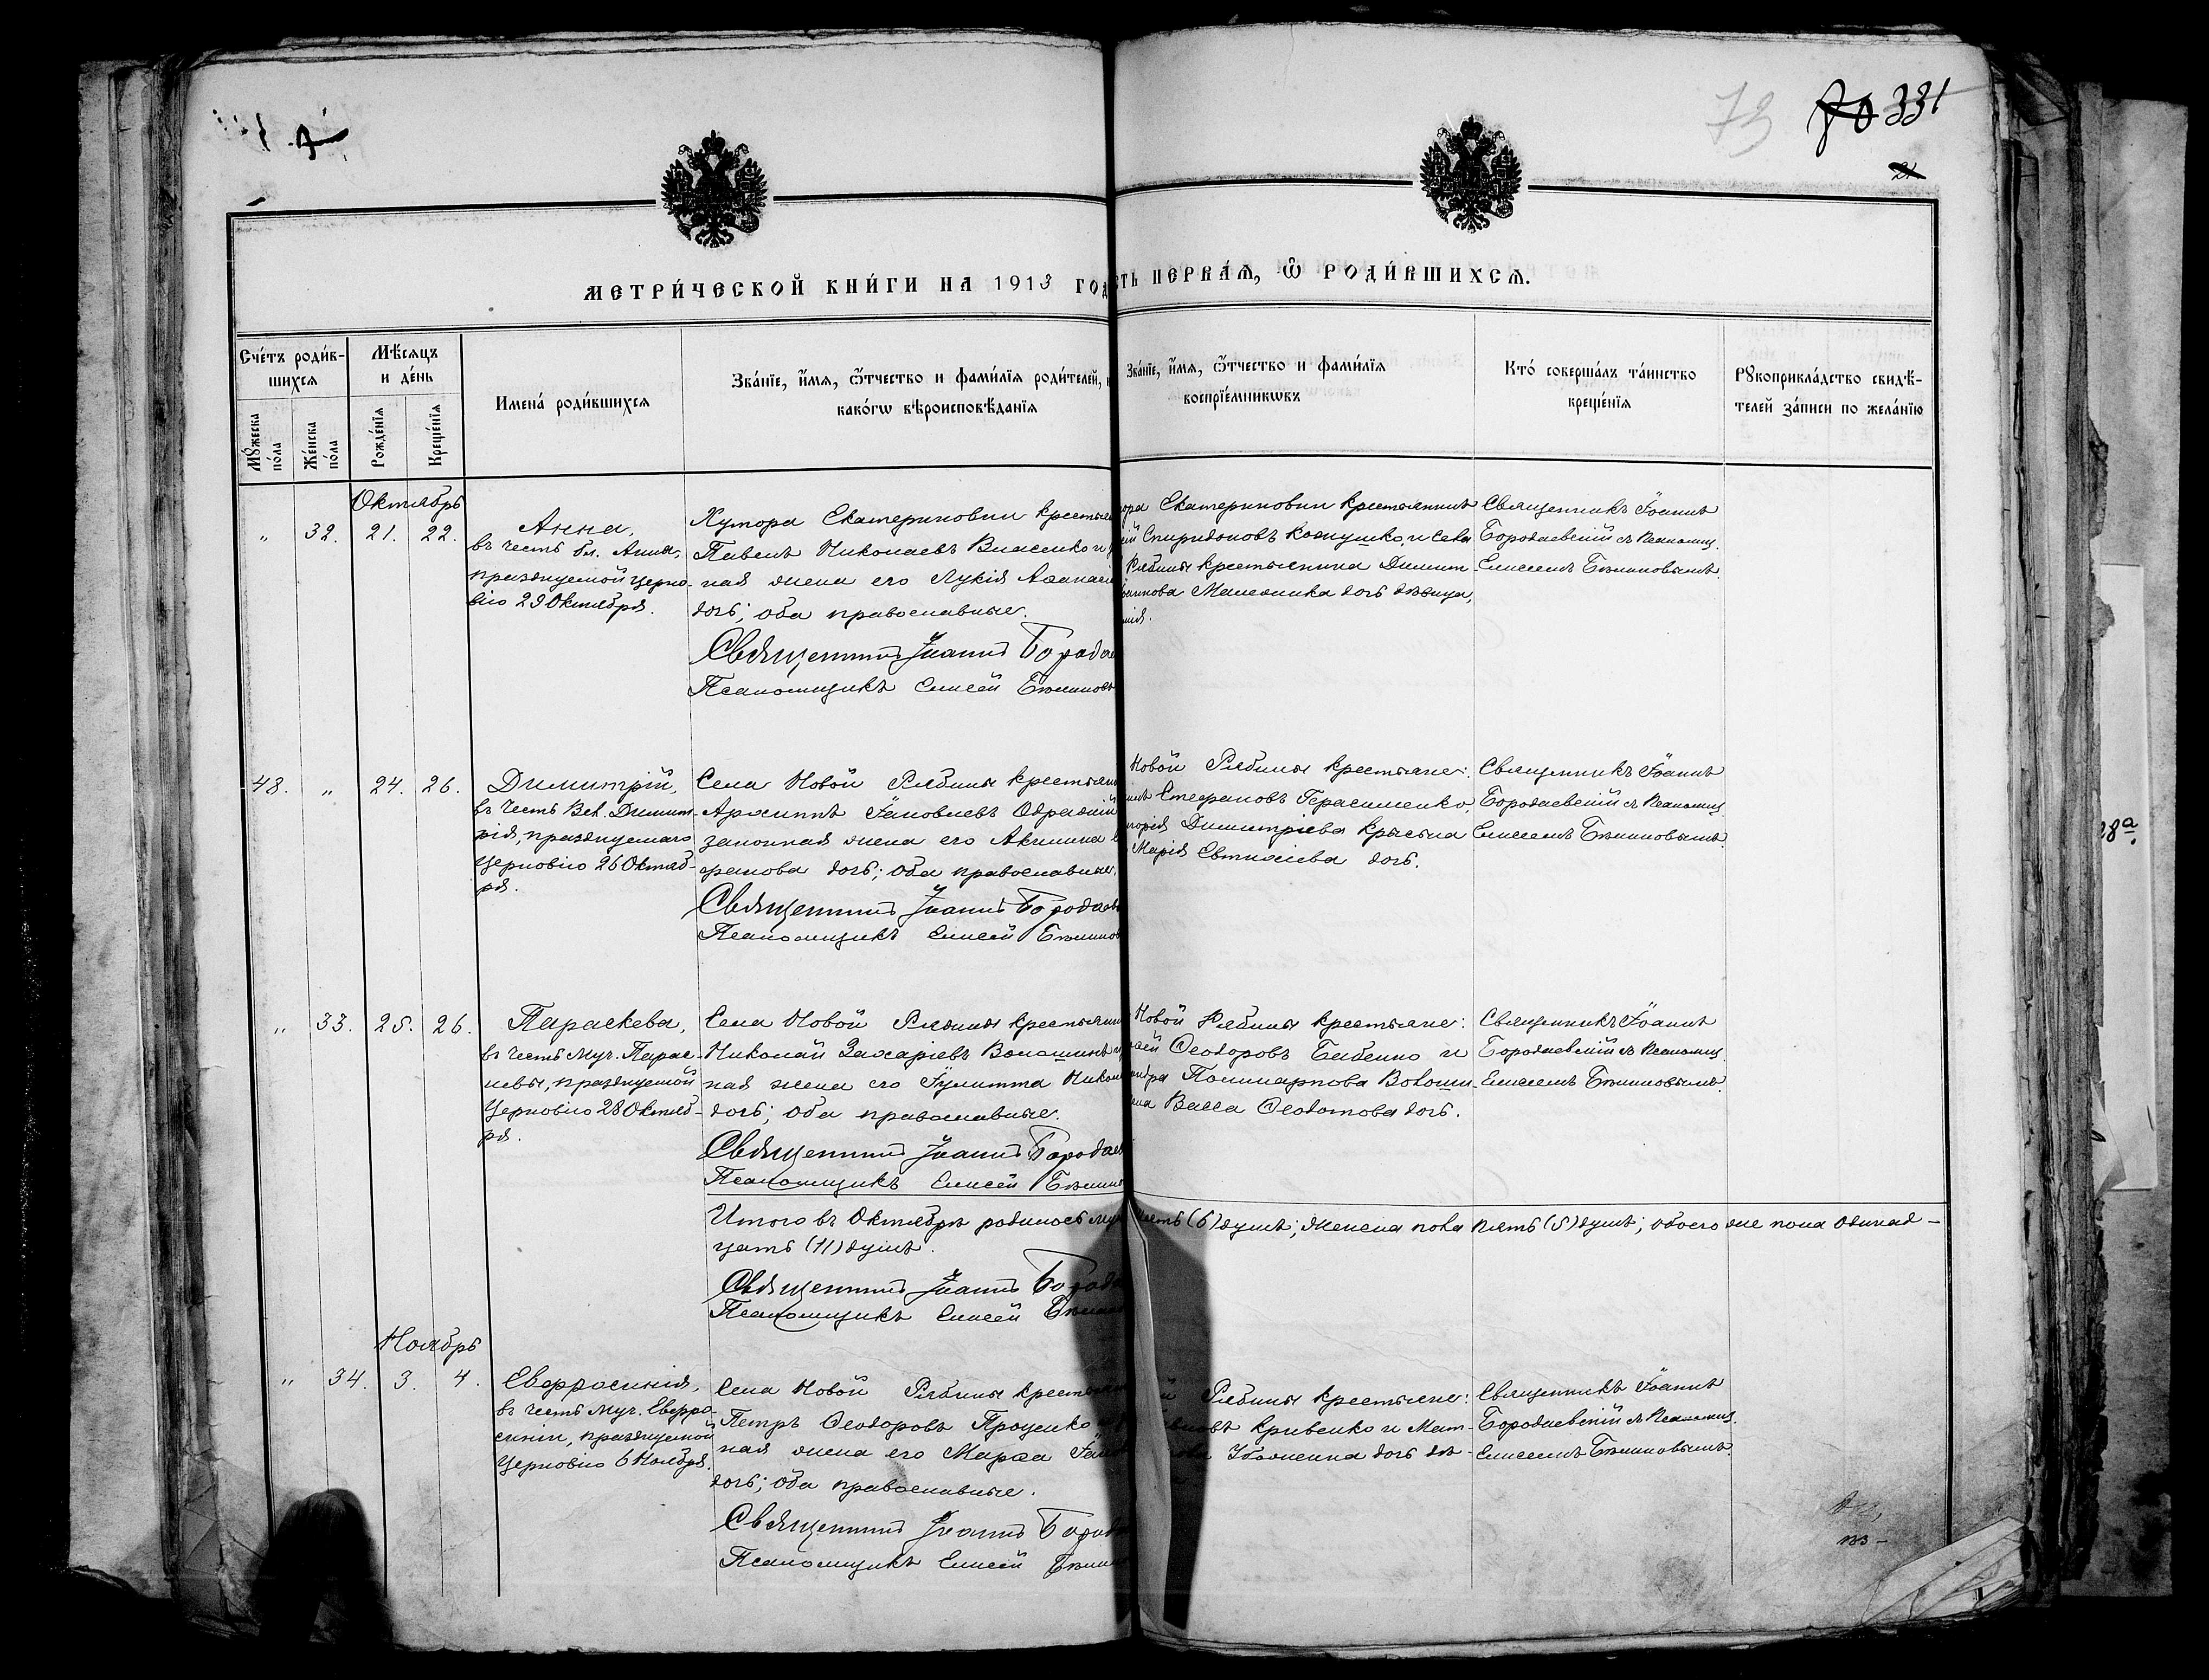 73
70 331
21
МЕТРИ́ЧЕСКОЙ КНИ́ГИ НА 1913 ГОД
СТЬ ПЕРВА́Я, Ѿ РОДИ́ВШИХСЯ.
Сче́тъ роди́в-
шихся
Мꙋ́жеска по́ла
Же́нска по́ла
Мѣ́сяцъ
и де́нь
Рожде́нїя
Креще́нїя
Имена́ роди́вшихся
Зва́нїе, и҆́мя, ѻ҆́тчество и фами́лїя роди́телей, и
како́гѡ вѣроисповѣ́данїя
Зва́нїе, и҆́мя, ѻ҆́тчество и фами́лїя
воспрїе́мникѡвъ
Кто́ соверша́лъ та́инство
креще́нїя
Рꙋкоприкла́дство свидѣ́-
телей за́писи по жела́нїю
Октябрь
„ 32. 21. 22.
Анна,
въ честь бл. Анны,
празднуемой церко-
вію 29 Октября.
Хутора Екатериновки крестья
Павелъ Николаевъ Власенко и
ная жена его Лукія Аѳанасі
дочь; оба православные.
Священникъ Іоаннъ Борода
Псаломщикъ Елисей Бѣлинов
ора Екатериновки крестьянинъ
ій Спиридоновъ Ковтушко, и села
Рябины крестьянина Димит-
дочь дѣвица,
Священникъ Іоаннъ
Бородаевскій съ Псаломщ.
Елисеемъ Бѣлиновымъ.
48. „ 24. 26.
Димитрій,
въ честь Вел. Димит-
рія, празднуемаго
Церковію 26 Октяб-
ря.
Села Новой Рябины крестьян
Архиппъ Іаковлевъ
законная жена его Акилина
дочь; оба православные.
Священникъ Іоаннъ Бородаев
Псаломщикъ Елисей Бѣлинов
Новой Рябины крестьяне:
Стефановъ Герасименко,
Димитріева
Марія Евтихіева дочь.
Священникъ Іоаннъ
Бородаевскій съ Псаломщ
Елисеемъ Бѣлиновымъ.
„ 33. 25. 26.
Параскева,
въ честь муч. Парас-
кевы, празднуемой
Церковію 28 Октяб-
ря.
Села Новой Рябины крестьянин
Николай Захаріевъ Волошинъ и
ная жена его Іулитта Никол
дочь; оба православные.
Священникъ Іоаннъ Бородаев
Псаломщикъ Елисей Бѣлин
Новой Рябины крестьяне:
Ѳеодоровъ Бабенко и
Поликарпова Волоши-
на Васса Ѳеодотова дочь.
Священникъ Іоаннъ
Бородаевскій съ Псаломщ.
Елисеемъ Бѣлиновымъ.
Итого въ Октябрѣ родилось му
шесть (6) душъ; женска пола пять (5) душъ; обоего же пола одинад-
цать (11) душъ.
Священникъ Іоаннъ Борода
Псаломщикъ Елисей Бѣлин
Ноябрь
„ 34. 3. 4.
Евфросинія,
въ честь муч. Евфро-
синіи, празднуемой
Церковію 6 Ноября.
Села Новой Рябины крестьян
Петръ Ѳеодоровъ Проценко
ная жена его Марѳа
дочь; оба православные.
Священникъ Іоаннъ Борода
Псаломщикъ Елисей Бѣлин
Рябины крестьяне:
Кривенко и Мат-
дочь дѣ-
Священникъ Іоаннъ
Бородаевскій съ Псаломщ.
Елисеемъ Бѣлиновымъ.